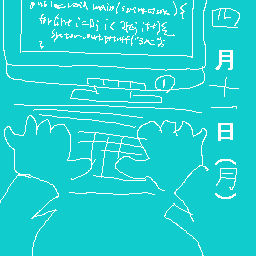 public void main(String[] args) {
for(int i=0; i<
i++){
System.out.printf(
}
①
四月十一日(月)